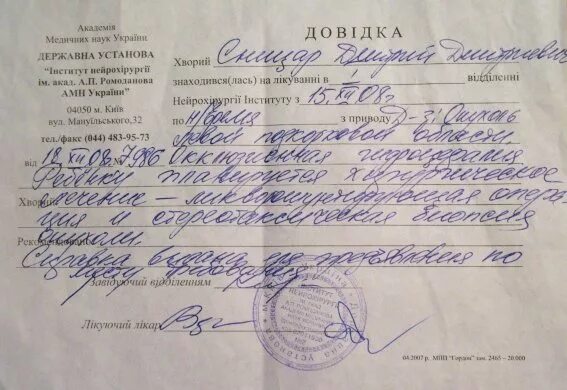 Академія
Медичних наук України
ДЕРЖАВНА УСТАНОВА
"Інститут нейрохірургії
ім. акад. А.П. Ромоданова
АМН України"
04050 м. Київ
вул. Мануїльського,32
тел./факс (044) 483-95-73
від 12 XII 08 № 7986
ДОВІДКА
Хворий Сницар Дмитрий Дмитриевич
знаходився(лась) на лікуванні в I відділенні
Нейрохірургії Інституту з 15.XII 08г.
по н/время з приводу Д-з: Опухоль
левой подкорковой области.
Окклюзионная гидроцефалия
Ребенку планируется хирургическое
Хворий лечение - ликворошунтирующая опера-
ция и стереотаксическая биопсия
Рекомендовано опухоли.
Справка выдана для предъявления по
месту требования
Завідуючий відділенням
Лікуючий лікар
04.2007 р. МПП "Гордон" зам. 2465 - 20.000